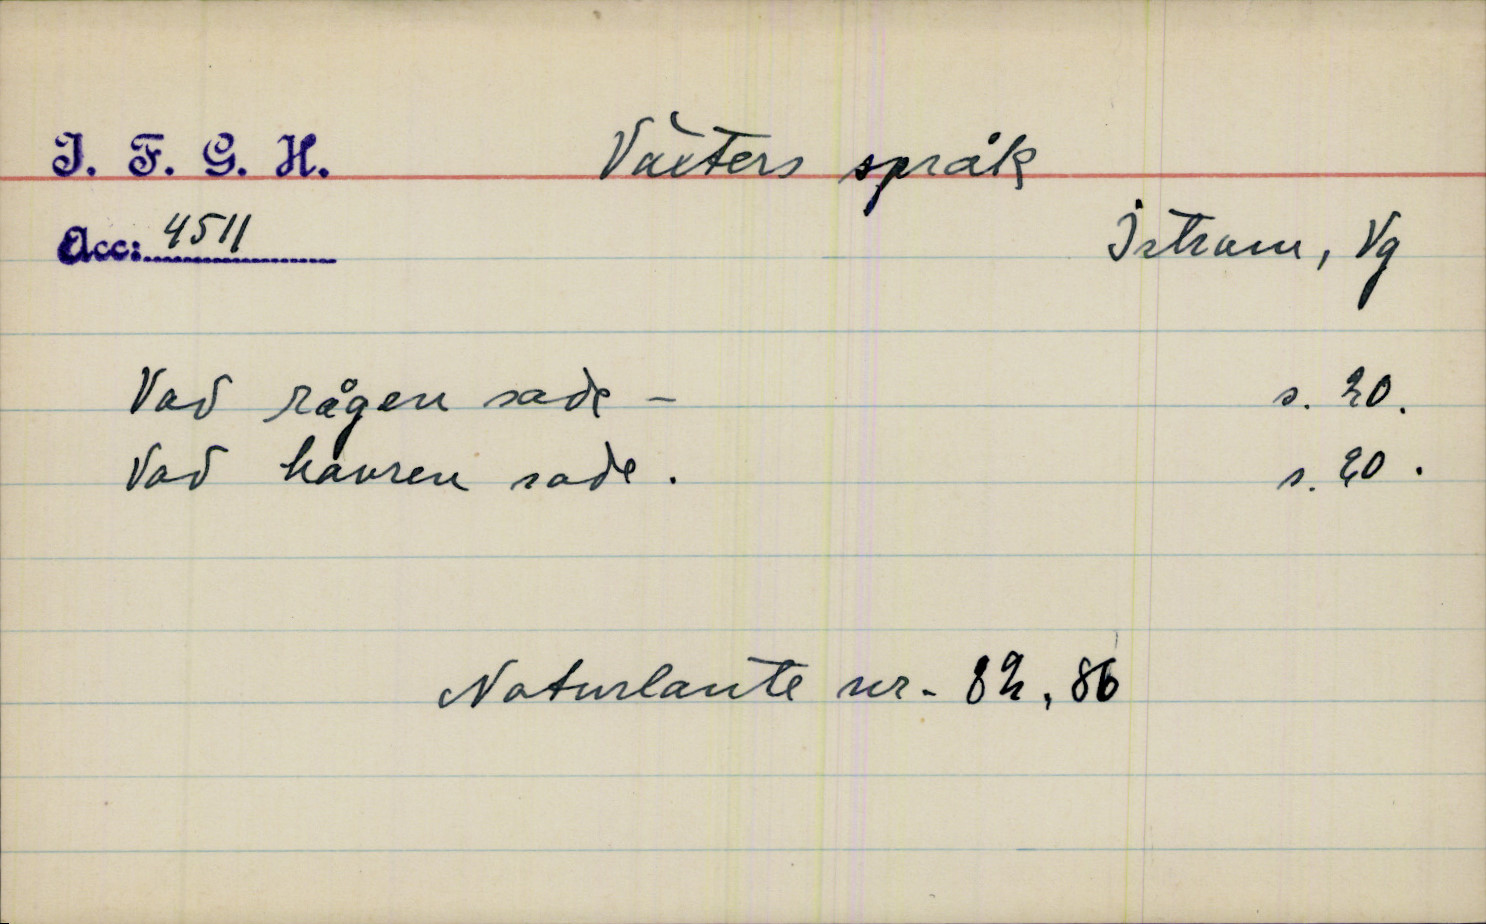 I. F. G. H.
Växters språk
Acc: 4511
Istrum, Vg
Vad rågen sade - s. 20.
Vad havren sade. s. 20.
Naturlaute nr. 82, 86